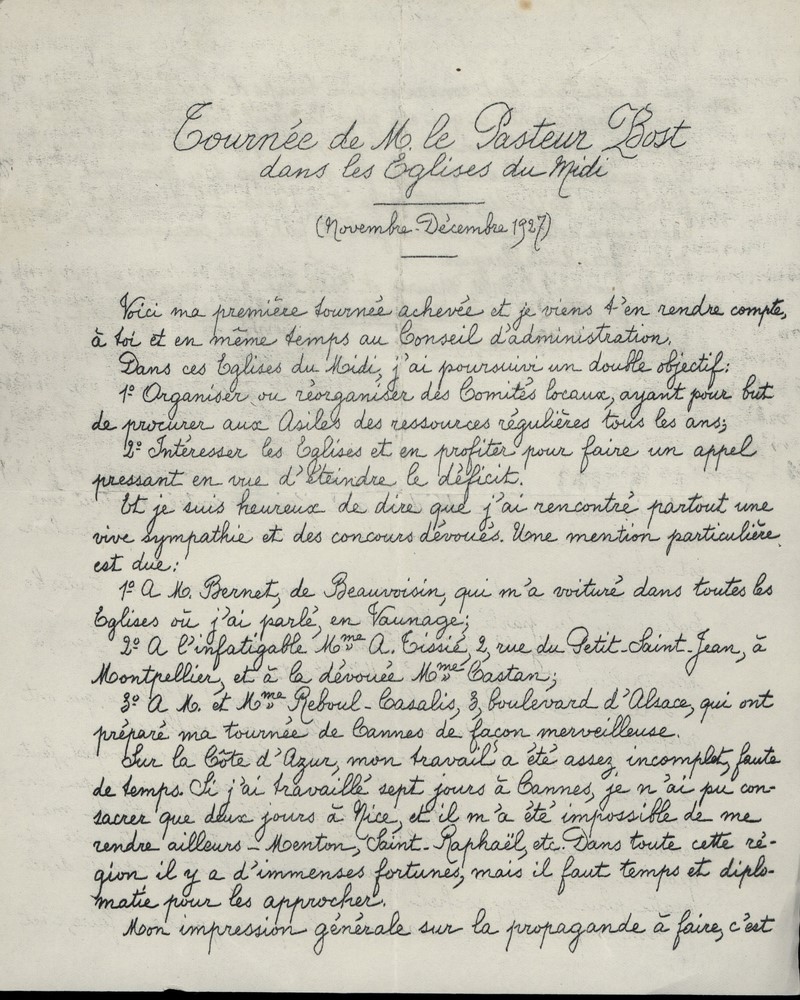 Tournée de M. le Pasteur Bost
dans les Eglises du Midi
(Novembre-Décembre 1927)
Voici ma première tournée achevée et je viens t'en rendre compte,
à toi et en même temps au Conseil d'administration.
Dans ces Eglises du Midi, j'ai poursuivi un double objectif:
1º Organiser ou réorganiser des Comités locaux, ayant pour but
de procurer aux Asiles des ressources régulières tous les ans;
2º Intéresser les Eglises et en profiter pour faire un appel
pressant en vue d'éteindre le déficit.
Et je suis heureux de dire que j'ai rencontré partout une
vive sympathie et des concours dévoués. Une mention particulière
est due:
1º A M. Bernet, de Beauvoisin, qui m'a voituré dans toutes les
Eglises où j'ai parlé, en Vaunage;
2º A l'infatigable Mme A. Tissié, 2, rue du Petit-Saint-Jean, à
Montpellier, et à la dévouée Mme Castan;
3º A M. et Mme Reboul-Casalis, 3, boulevard d'Alsace, qui ont
préparé ma tournée de Cannes de façon merveilleuse.
Sur la Côte d'Azur, mon travail a été assez incomplet, faute
de temps. Si j'ai travaillé sept jours à Cannes, je n'ai pu con-
sacrer que deux jours à Nice, et il m'a été impossible de me
rendre ailleurs - Menton, Saint-Raphaël, etc. Dans toute cette ré-
gion il y a d'immenses fortunes, mais il faut temps et diplo-
matie pour les approcher.
Mon impression générale sur la propagande à faire, c'est